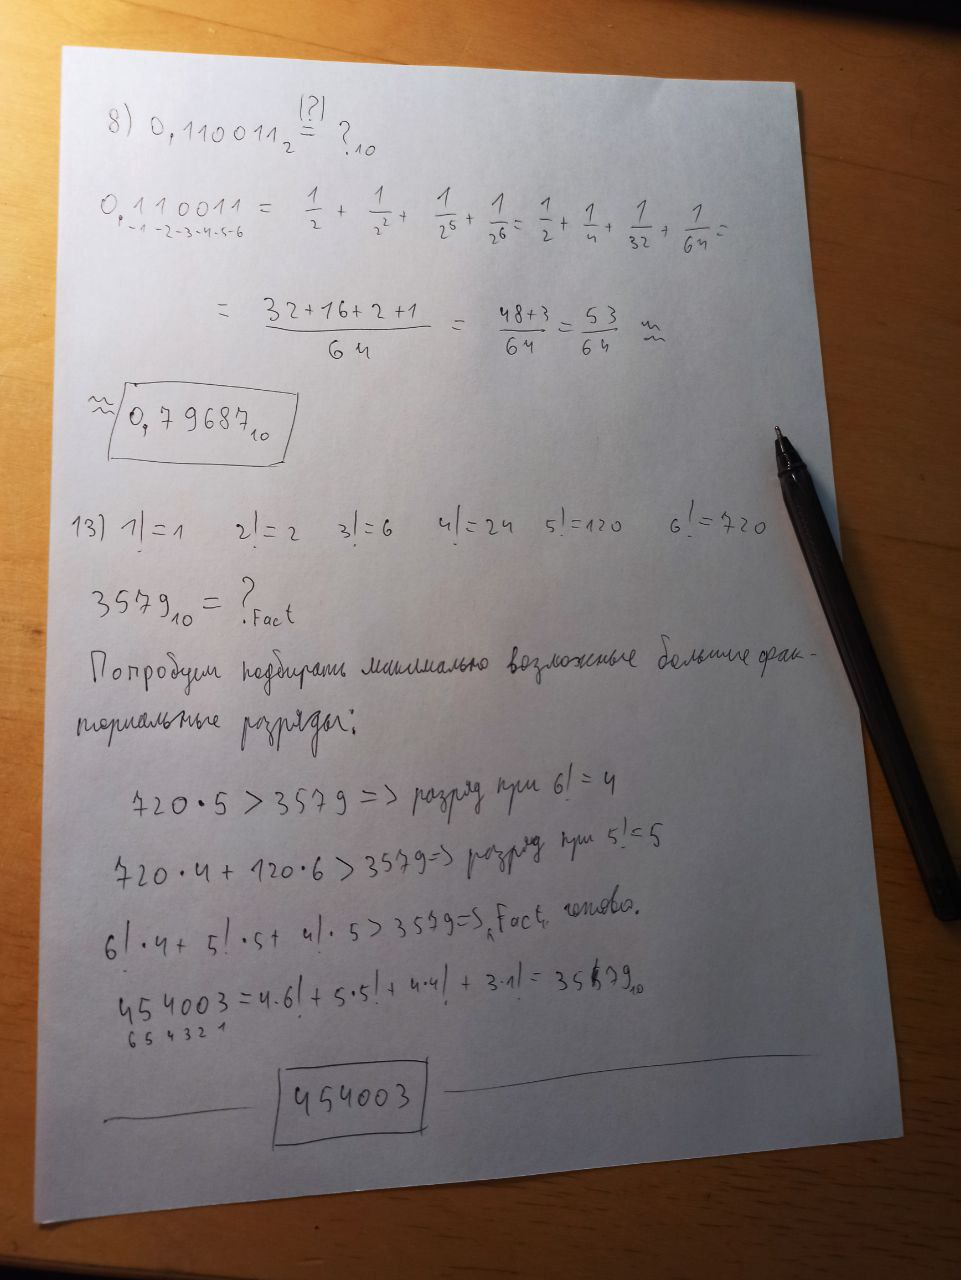 8) 0,110011₂ = ?₁₀
(?)
0,110011 = 1/2 + 1/2² + 1/2⁵ + 1/2⁶ = 1/2 + 1/4 + 1/32 + 1/64 =
-1 -2 -3 -4 -5 -6
= (32+16+2+1)/64 = (48+3)/64 = 53/64 ≈
≈ 0,79687₁₀
13) 1! = 1 2! = 2 3! = 6 4! = 24 5! = 120 6! = 720
3579₁₀ = ?Fact
Попробуем подбирать максимально возможные большие фак-
ториальные разряды:
720·5 > 3579 => разряд при 6! = 4
720·4 + 120·6 > 3579 => разряд при 5! = 5
6!·4 + 5!·5 + 4!·5 > 3579 => Fact, готово.
454003 = 4·6! + 5·5! + 4·4! + 3·1! = 3579₁₀
6 5 4 3 2 1
454003